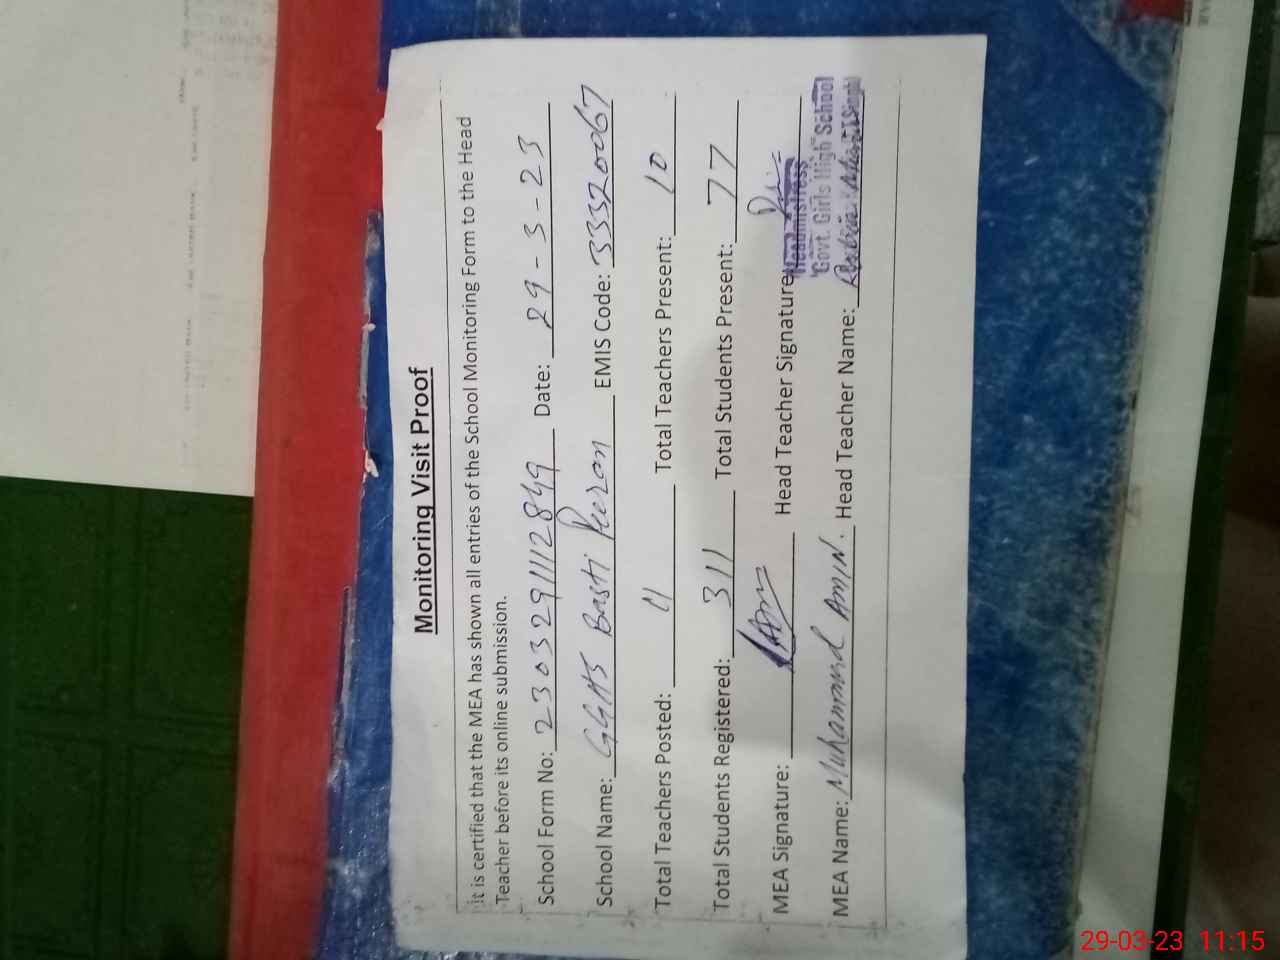 Monitoring Visit Proof
It is certified that the MEA has shown all entries of the School Monitoring Form to the Head
Teacher before its online submission.
School Form No: 2303291112849 Date: 29-3-23
School Name: GGHS Basti Peeran EMIS Code: 33320067
Total Teachers Posted: 11 Total Teachers Present: 10
Total Students Registered: 311 Total Students Present: 77
MEA Signature: Head Teacher Signature
Headmistress
Govt. Girls High School
MEA Name: Muhammad Amin. Head Teacher Name:
29-03-23 11:15